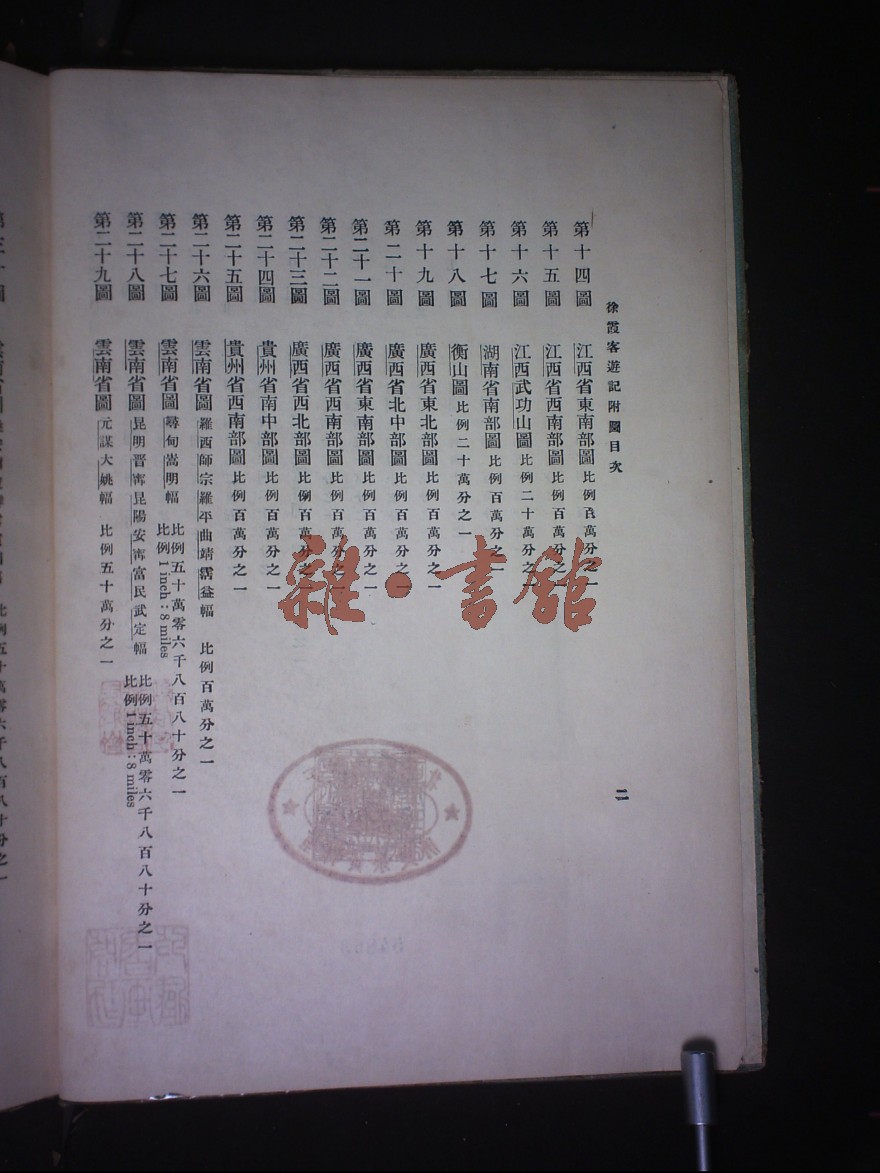 徐霞客遊記附圖目次
二
第十四圖 江西省東南部圖 比例百萬分之一
第十五圖 江西省西南部圖 比例百萬分之一
第十六圖 江西武功山圖 比例二十萬分之一
第十七圖 湖南省南部圖 比例百萬分之一
第十八圖 衡山圖 比例二十萬分之一
第十九圖 廣西省東北部圖 比例百萬分之一
第二十圖 廣西省北中部圖 比例百萬分之一
第二十一圖 廣西省東南部圖 比例百萬分之一
第二十二圖 廣西省西南部圖 比例百萬分之一
第二十三圖 廣西省西北部圖 比例百萬分之一
第二十四圖 貴州省南中部圖 比例百萬分之一
第二十五圖 貴州省西南部圖 比例百萬分之一
第二十六圖 雲南省圖 羅西師宗羅平曲靖霑益幅 比例百萬分之一
第二十七圖 雲南省圖 尋甸嵩明幅 比例五十萬零六千八百八十分之一
比例 1 inch : 8 miles
第二十八圖 雲南省圖 昆明晋寗昆陽安寗富民武定幅 比例五十萬零六千八百八十分之一
比例 1 inch : 8 miles
第二十九圖 雲南省圖 元謀大姚幅 比例五十萬分之一
雜·書館